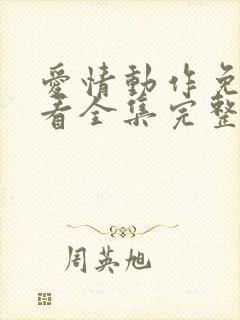 愛情動作免
看全集完整
周英旭